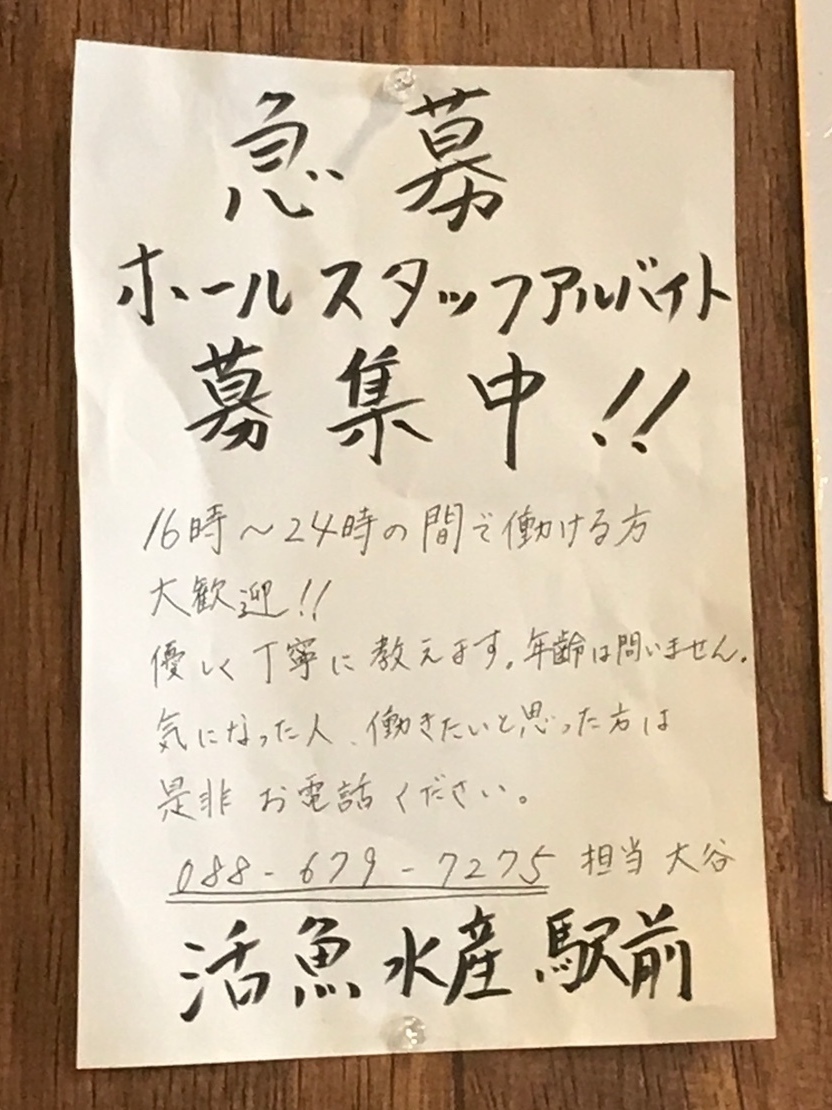 急募
ホールスタッフアルバイト
募集中!!
16時～24時の間で働ける方
大歓迎!!
優しく丁寧に教えます。年齢は問いません。
気になった人、働きたいと思った方は
是非お電話ください。
088-679-7275 担当 大谷
活魚水産 駅前